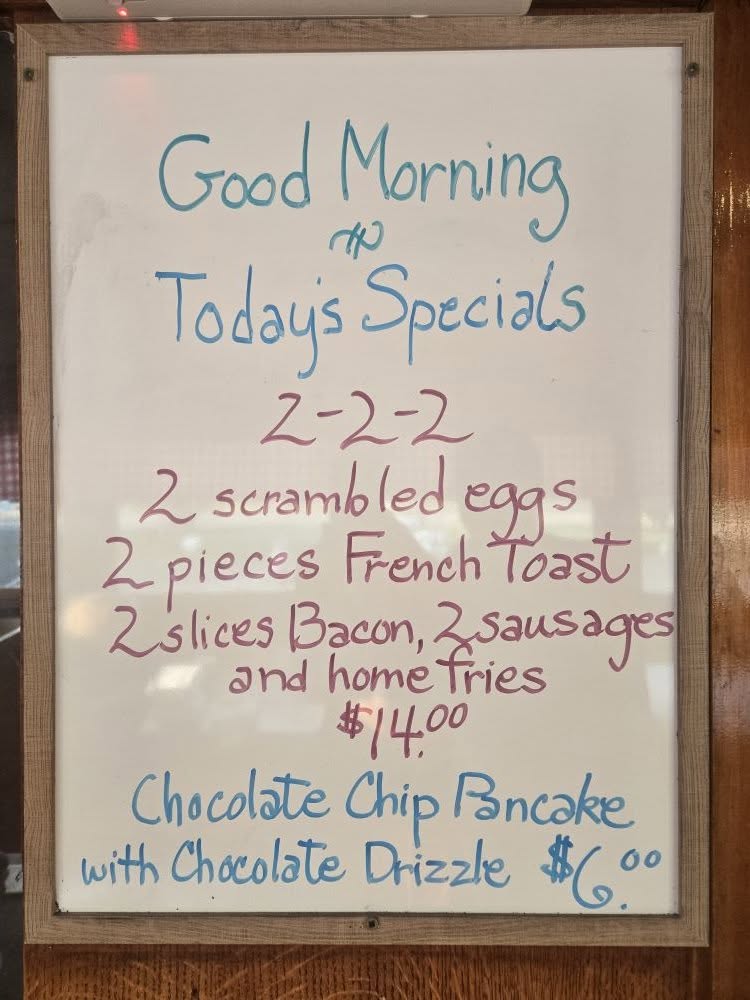 Good Morning
Today's Specials
2-2-2
2 scrambled eggs
2 pieces French Toast
2 slices Bacon, 2 sausages
and home fries
$14.00
Chocolate Chip Pancake
with Chocolate Drizzle $6.00